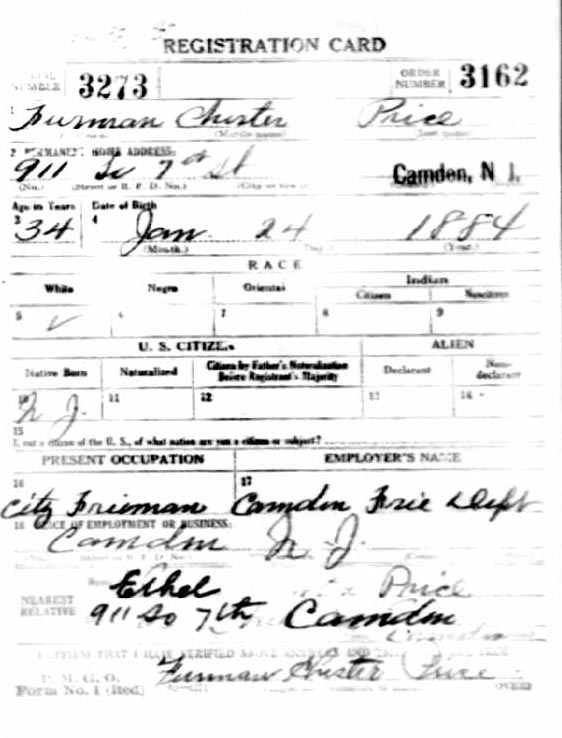 REGISTRATION CARD
SERIAL NUMBER 3273 ORDER NUMBER 3162
1 Furman Chester Price
(Middle name) (Last name)
2 PERMANENT HOME ADDRESS:
911 So 7th St Camden, N. J.
(No.) (Street or R. F. D. No.) (City or town)
Age in Years Date of Birth
3 34 4 Jan 24 1884
(Month.) (Day.) (Year.)
RACE
White Negro Oriental Indian
Citizen Noncitizen
5 ✓ 6 7 8 9
U. S. CITIZEN ALIEN
Native Born Naturalized Citizen by Father's Naturalization Before Registrant's Majority Declarant Non-declarant
10 N. J. 11 12 13 14
15
If not a citizen of the U. S., of what nation are you a citizen or subject?
PRESENT OCCUPATION EMPLOYER'S NAME
16 City Frieman 17 Camden Frie Dept
18 PLACE OF EMPLOYMENT OR BUSINESS:
Camden N. J.
(No.) (Street or R. F. D. No.)
NEAREST RELATIVE
Name Ethel Price
911 So 7th Camden
I AFFIRM THAT I HAVE VERIFIED ABOVE ANSWERS AND THAT THEY ARE TRUE
P. M. G. O.
Form No. 1 (Red) Furman Chester Price
OVER